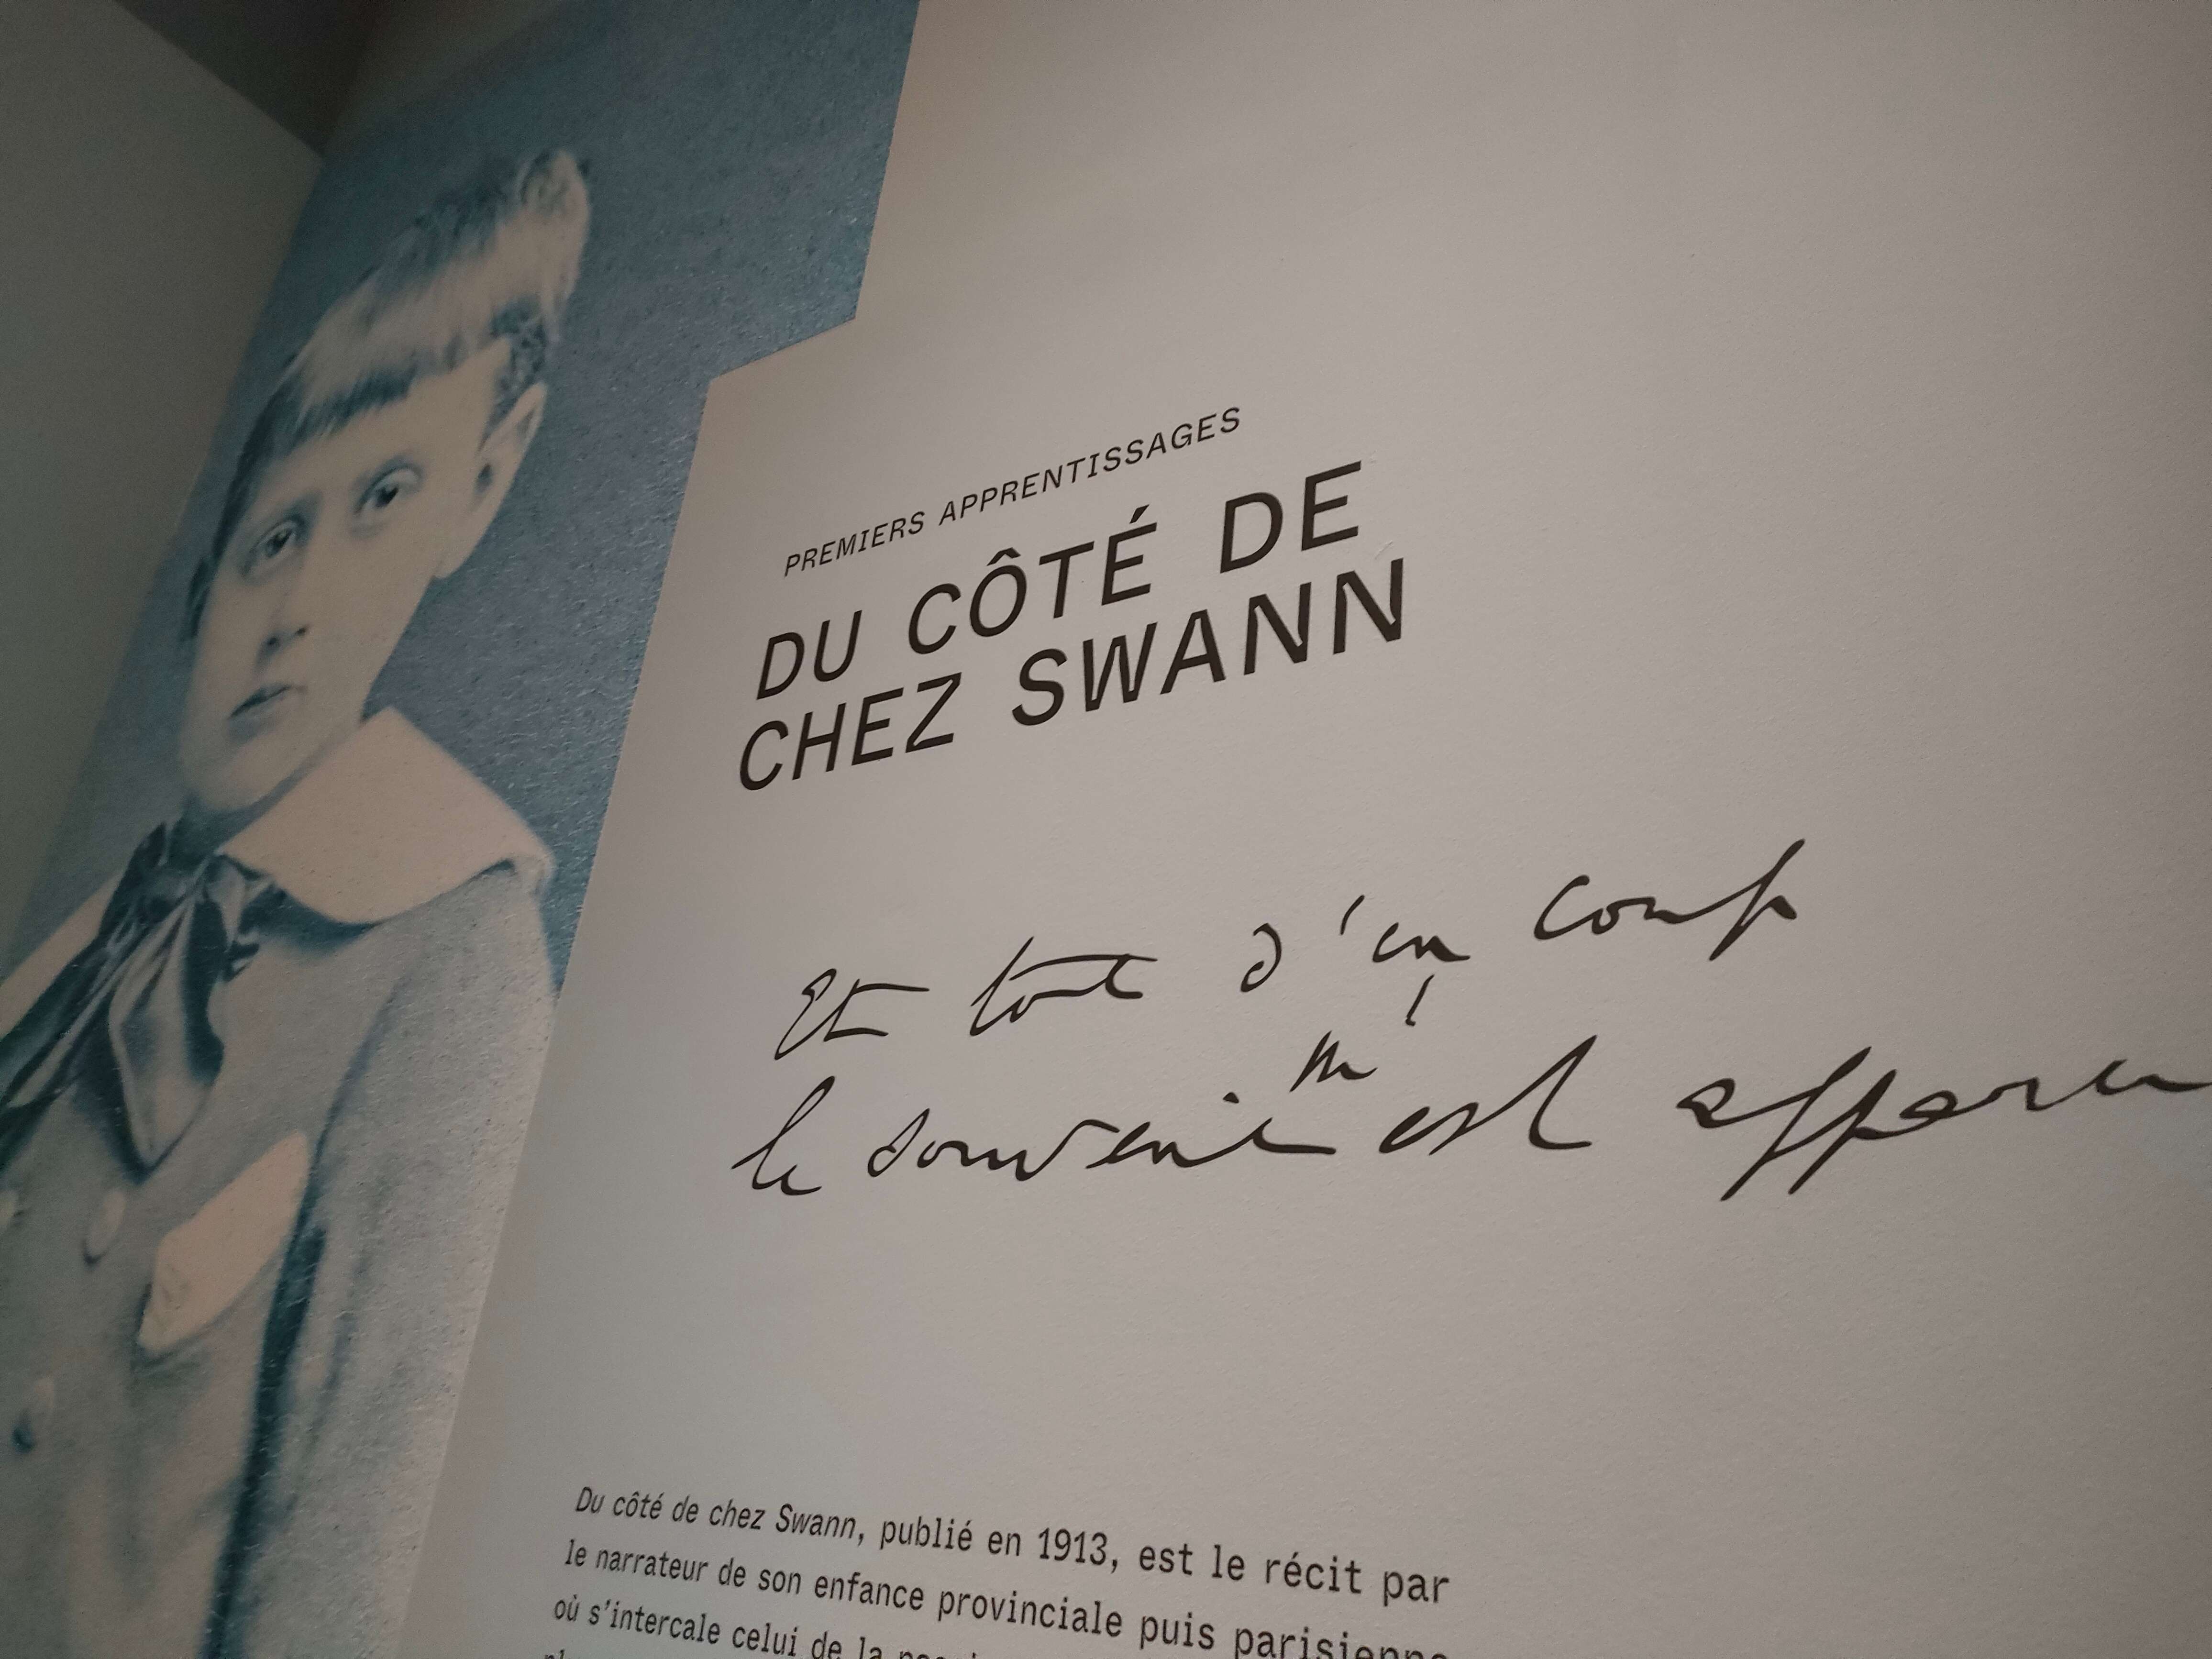 PREMIERS APPRENTISSAGES
DU CÔTÉ DE
CHEZ SWANN
Et tout d'un coup
le souvenir m'est apparu
Du côté de chez Swann, publié en 1913, est le récit par
le narrateur de son enfance provinciale puis parisienne
où s'intercale celui de la